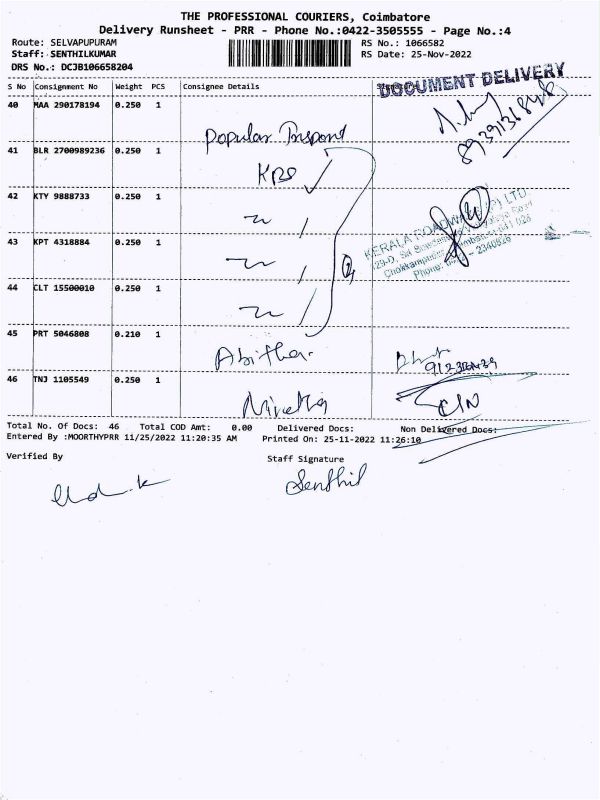 THE PROFESSIONAL COURIERS, Coimbatore
Delivery Runsheet - PRR - Phone No.:0422-3505555 - Page No.:4
Route: SELVAPUPURAM
RS No.: 1066582
Staff: SENTHILKUMAR
RS Date: 25-Nov-2022
DRS No.: DCJB106658204
S No Consignment No Weight PCS Consignee Details
DOCUMENT DELIVERY
40 MAA 290178194 0.250 1
Popular
41 BLR 2700989236 0.250 1
KRS
42 KTY 9888733 0.250 1
KERALA ROADWAYS (P) LTD
43 KPT 4318884 0.250 1
Phone:
44 CLT 15500010 0.250 1
45 PRT 5046808 0.210 1
Abitha
46 TNJ 1105549 0.250 1
Total No. Of Docs: 46 Total COD Amt: 0.00 Delivered Docs: Non Delivered Docs:
Entered By :MOORTHYPRR 11/25/2022 11:20:35 AM Printed On: 25-11-2022 11:26:10
Verified By
Staff Signature
Senthil